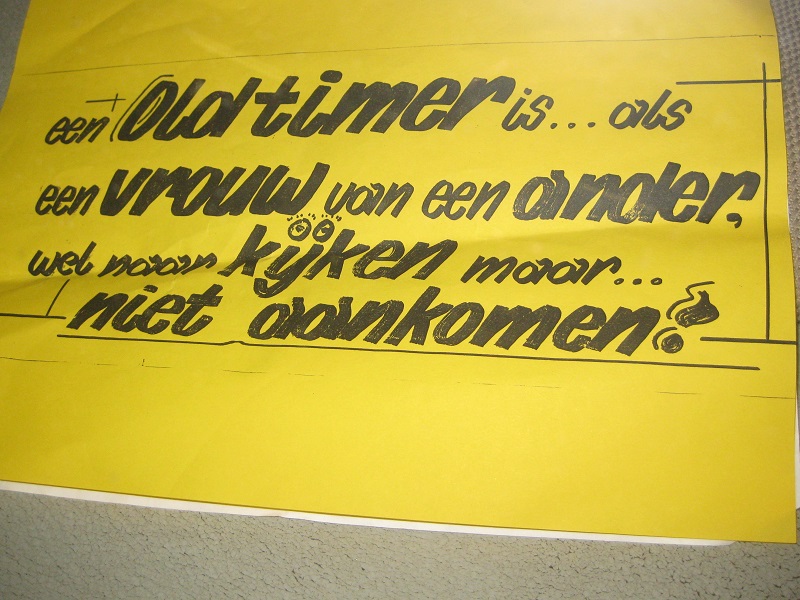 een Oldtimer is... als
een vrouw van een ander,
wel naar kijken maar...
niet aankomen!